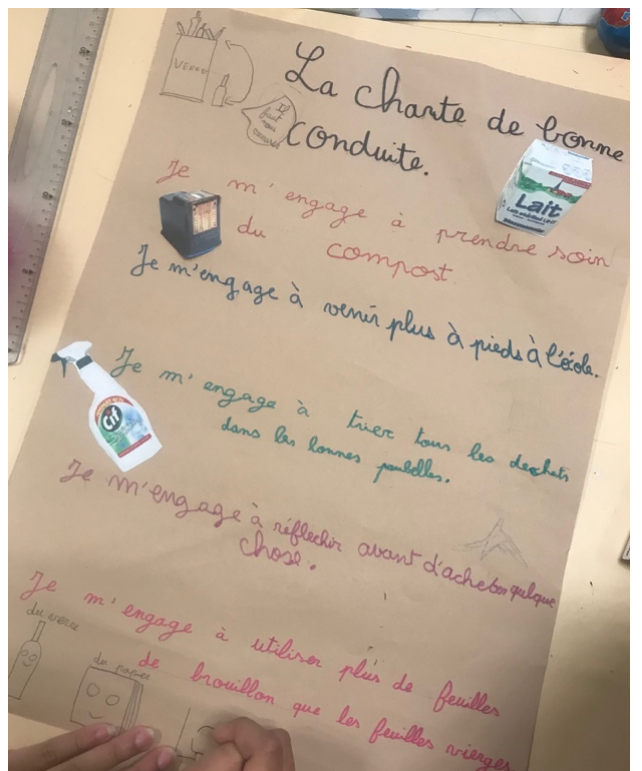 VERRE
Il
faut
nous
La charte de bonne
conduite.
Je m'engage à prendre soin
du compost.
Lait
Je m'engage à venir plus à pieds à l'école.
Cif
Je m'engage à trier tous les dechets
dans les bonnes poubelles.
Je m'engage à réflechir avant d'acheter quelque
chose.
Je m'engage à utiliser plus de feuilles
de brouillon que les feuilles vierges
du verre
du papier